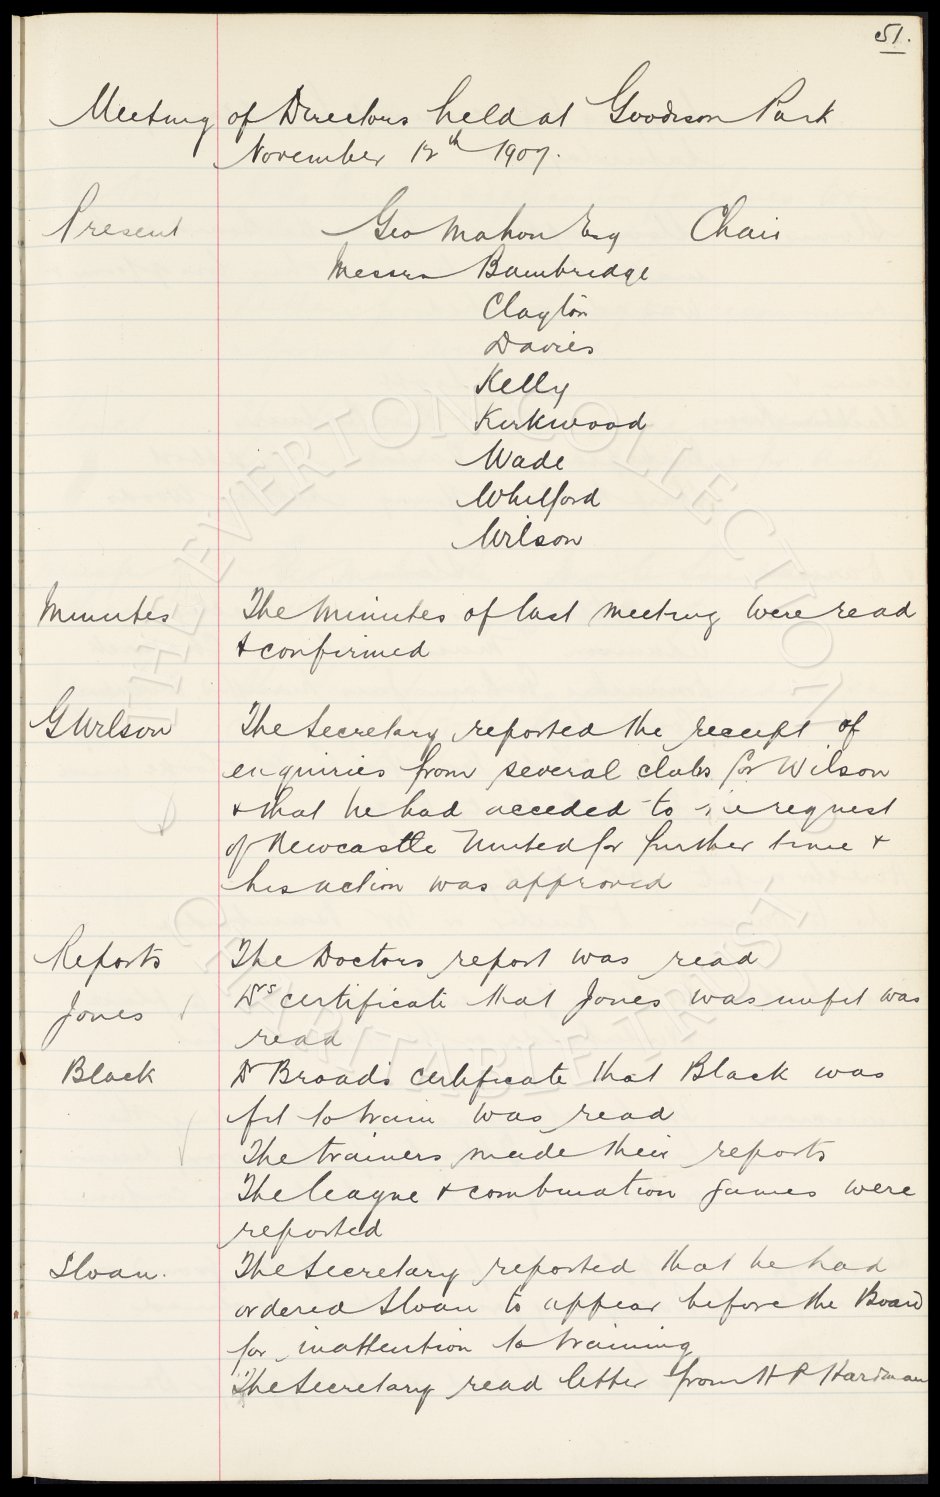 51.
Meeting of Directors held at Goodison Park
November 12th 1907.
Present Geo Mahon Esq Chair
Messrs Bainbridge
Clayton
Davies
Kelly
Kirkwood
Wade
Whitford
Wilson
Minutes The Minutes of last meeting were read
& confirmed
G Wilson The Secretary reported the receipt of
enquiries from several clubs for Wilson
& that he had acceded to the request
of Newcastle United for further time &
his action was approved
Reports The Doctors report was read
Jones Drs certificate that Jones was unfit was
read
Black Dr Broads certificate that Black was
fit to train was read
The trainers made their reports
The league & combination games were
reported
Sloan. The Secretary reported that he had
ordered Sloan to appear before the Board
for inattention to training
The Secretary read letter from H P Hardman
THE EVERTON COLLECTION
CHARITABLE TRUST